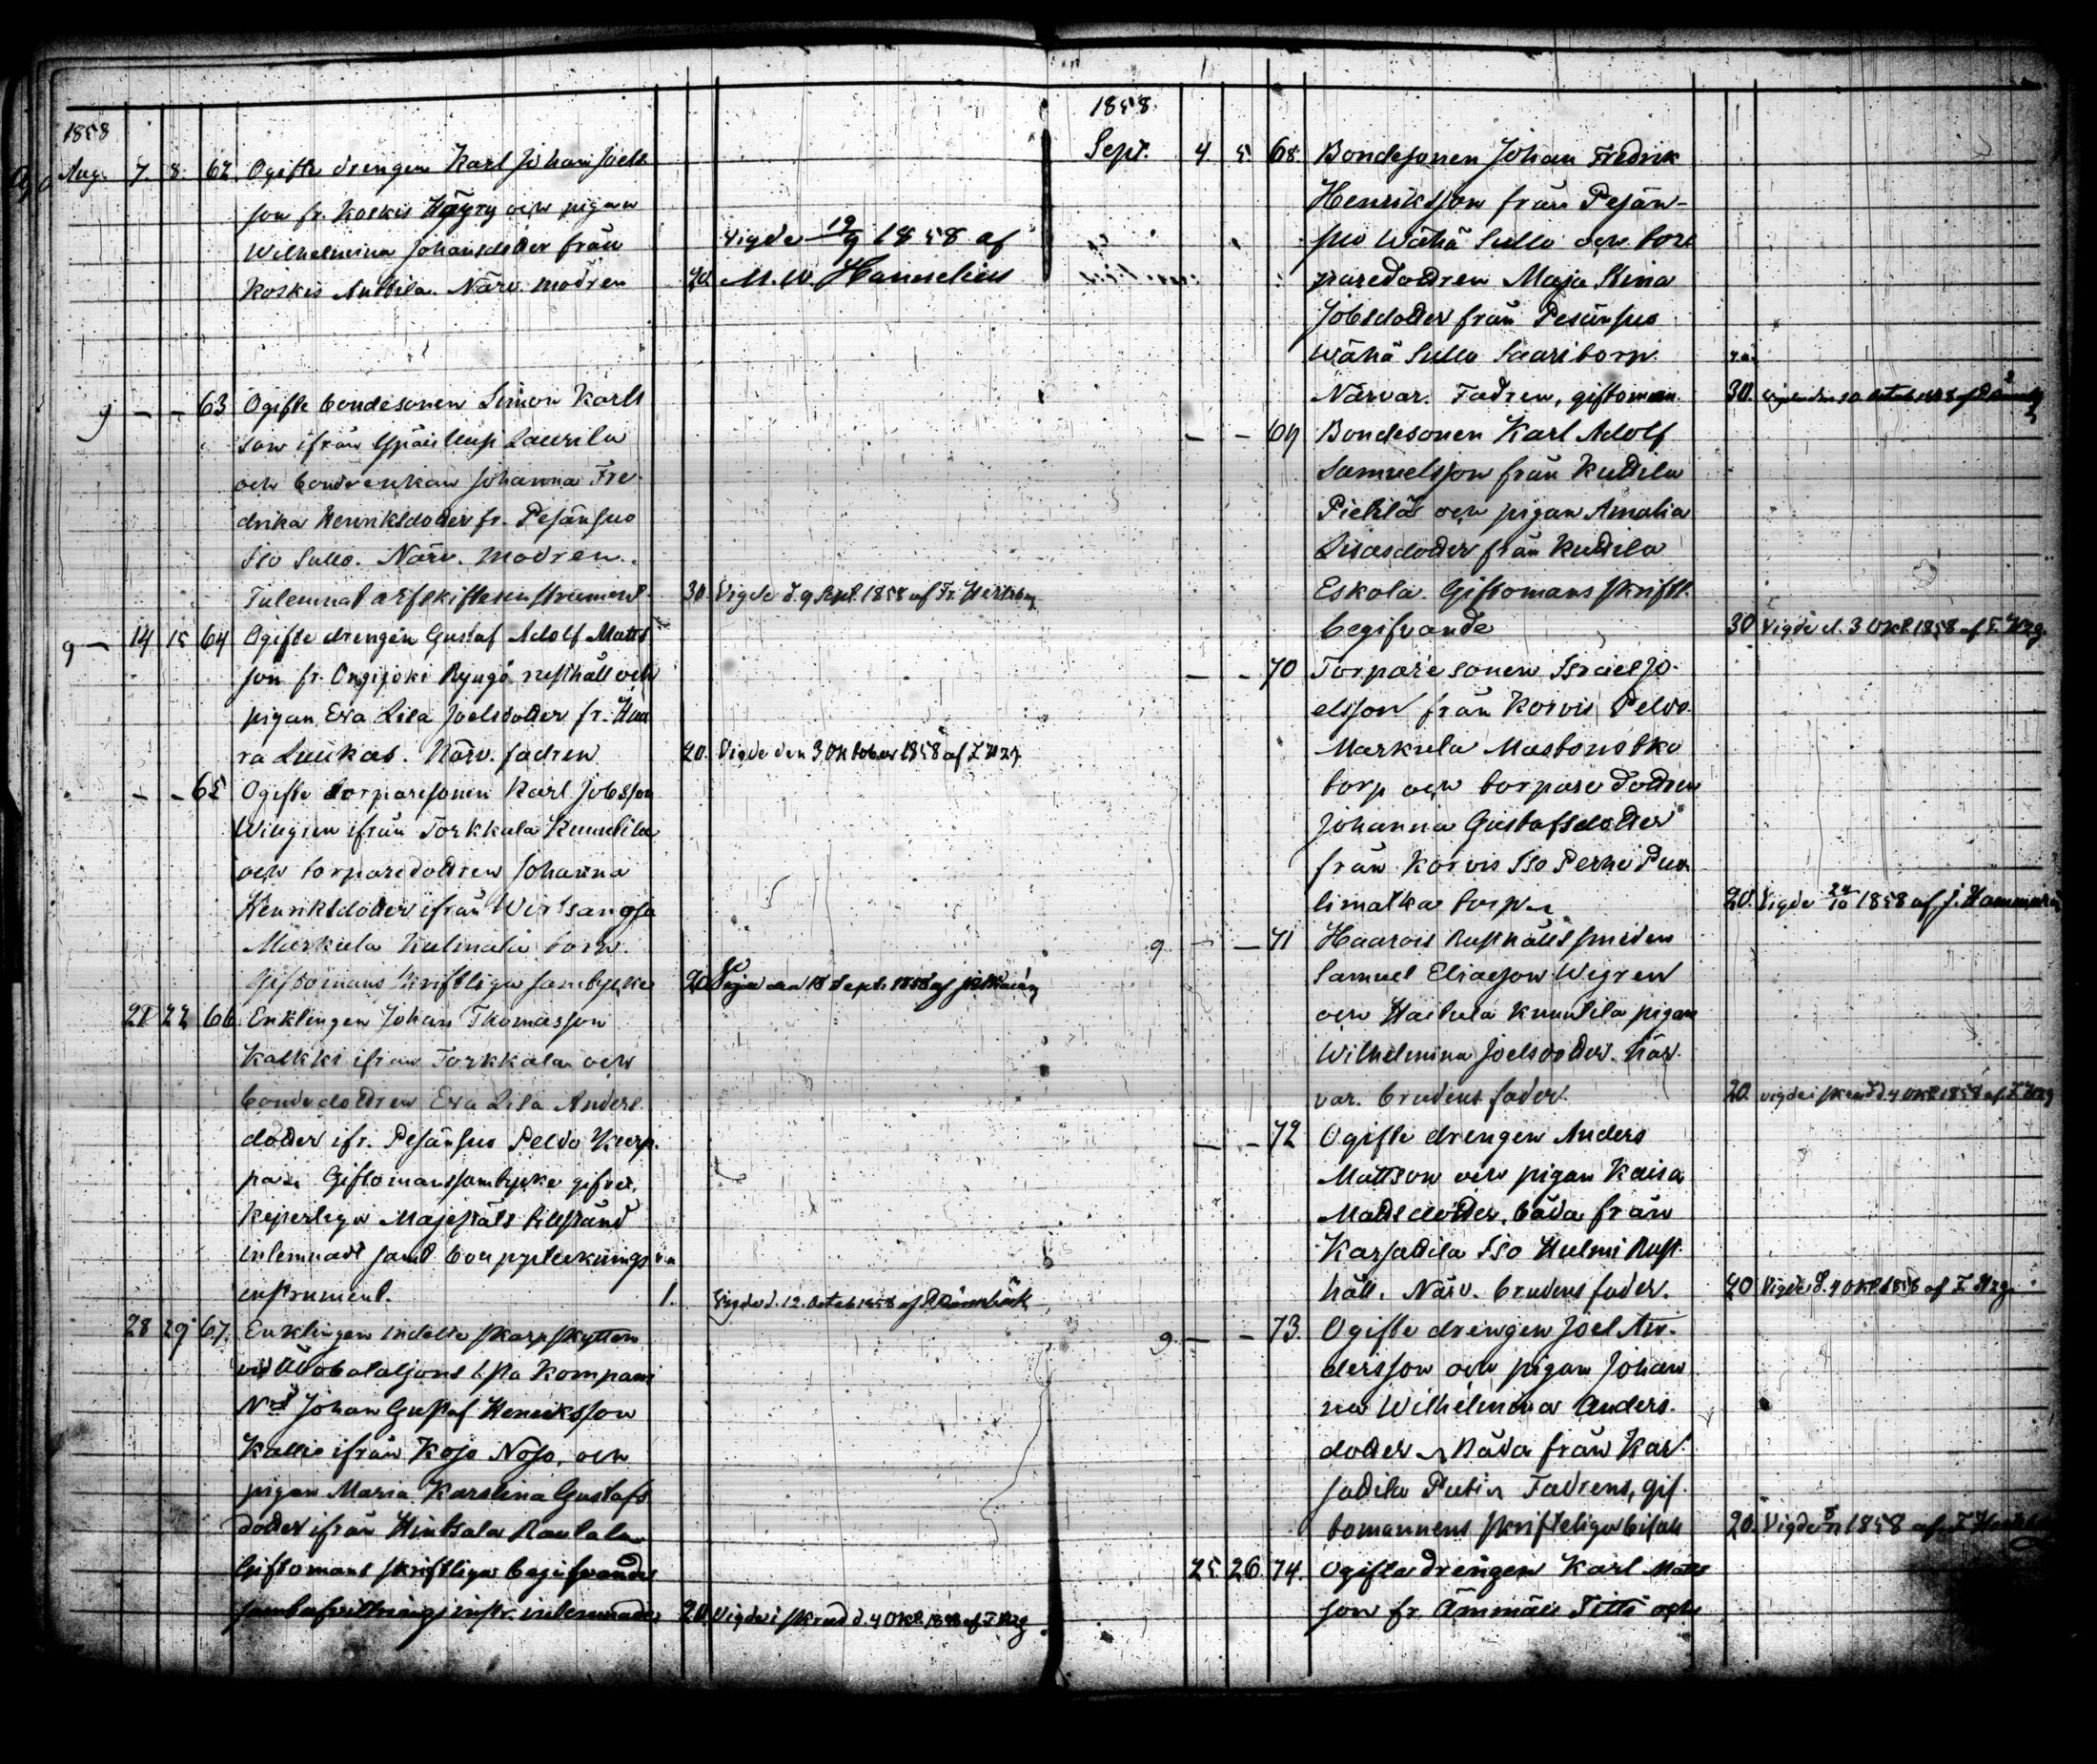 1858
Aug. 7. 8. 62 Ogifte drengen Karl Johan Joels
son fr. Koskis Häyry och pigan
Wilhelmina Johansdotter från
Koskis Anttila. Närv. modren 20.
Vigde 19/9 1858 af
M. W. Hannelius
g — — 63 Ogifte bondesonen Simon Karls
son ifrån Laurila
och bondeenkan Johanna Fre-
drika Henriksdotter fr. Pesänsuo
Iso Sullo. Närv. modren.
Inlemnat arfskiftesinstrument. 30. Vigde d. 9 Sept. 1858 af Fr. Hertzberg
g — 14 15 64 Ogifte drengen Gustaf Adolf Matts
son fr. Ongijoki Ryngö rusthåll och
pigan Eva Lisa Joelsdotter fr. Haa
ra Luukas. Närv. fadren 20. Vigde den 3 Oktober 1858 af F. Hzg.
— — 65 Ogifte torparesonen Karl Jobsson
Wingren ifrån Torkkala Knuutila
och torparedottren Johanna
Henriksdotter ifrån Wirtsanoja
Markula Kulmala torp.
Giftomans skriftliga samtycke 20. Vigde den 18 Sept. 1858 af
21 22 66 Enklingen Johan Thomasson
Kalkki ifrån Torkkala och
bondedottren Eva Lisa Anders
dotter ifr. Pesänsuo Peldo Kurp
pari Giftomanssamtycke gifvet,
Kejserliga Majestäts tillstånd
inlemnadt samt bouppteckningsin
instrument. 1. Vigde d. 12. Octob 1858 af Rönnbäck
28 29 67. Enklingen indelte skarpskytten
vid Åbo bataljons 1sta Kompani
Johan Gustaf Henriksson
Kallio ifrån Kojo Nojo, och
pigan Maria Karolina Gustafs
dotter ifrån Hintsala Rautala
Giftomans skriftliga begifvande
samt afvittrings instr. inlemnades 20. Vigde i skrud d. 4 Okt. 1858 af F. Hzg
1858.
Sept. 4. 5. 68. Bondesonen Johan Fredrik
Henriksson från Pesän-
suo Wähä Sullo och torp
paredottren Maja Stina
Jobsdotter från Pesänsuo
Wähä Sullo Saari torp.
Närvar. Fadren, giftoman. 30. Vigde den 10 Octob 1858 af
— — 69 Bondesonen Karl Adolf
Samuelsson från Kuttila
Piekkla och pigan Amalia
Lisasdotter från Kuttila
Eskola. Giftomans skriftl.
begifvande 30 Vigde d. 3 Okt. 1858 af F. Hzg.
— — 70 Torparesonen Israel Jo-
elsson från Korvis Peldo
Markula Mustanotko
torp och torparedottren
Johanna Gustafsdotter
från Korvis Iso Perho Puo
limatka torp 20. Vigde 24/10 1858 af J. Hammarén
g — — 71 Haarois Rusthålls smeden
Samuel Eliasson Wegren
och Haihula Knuutila pigan
Wilhelmina Joelsdotter. När-
var. brudens fader. 20. vigde i skrud d. 4 Okt. 1858 af F. Hzg
— — 72 Ogifte drengen Anders
Mattsson och pigan Kaisa
Mattsdotter, båda från
Karjadila Iso Hulmi Rust-
håll. Närv. brudens fader. 20 Vigde d. 4 Okt. 1858 af F. Hzg.
g — — 73. Ogifte drengen Joel An-
dersson och pigan Johan
na Wilhelmina Anders-
dotter båda från Kar-
jadila Fadrens, gif-
tomannens skrifteliga bifall 20. Vigde 1858 af F.
25 26. 74. Ogifte drengen Karl Matts
son fr. Ämmäis Titti och